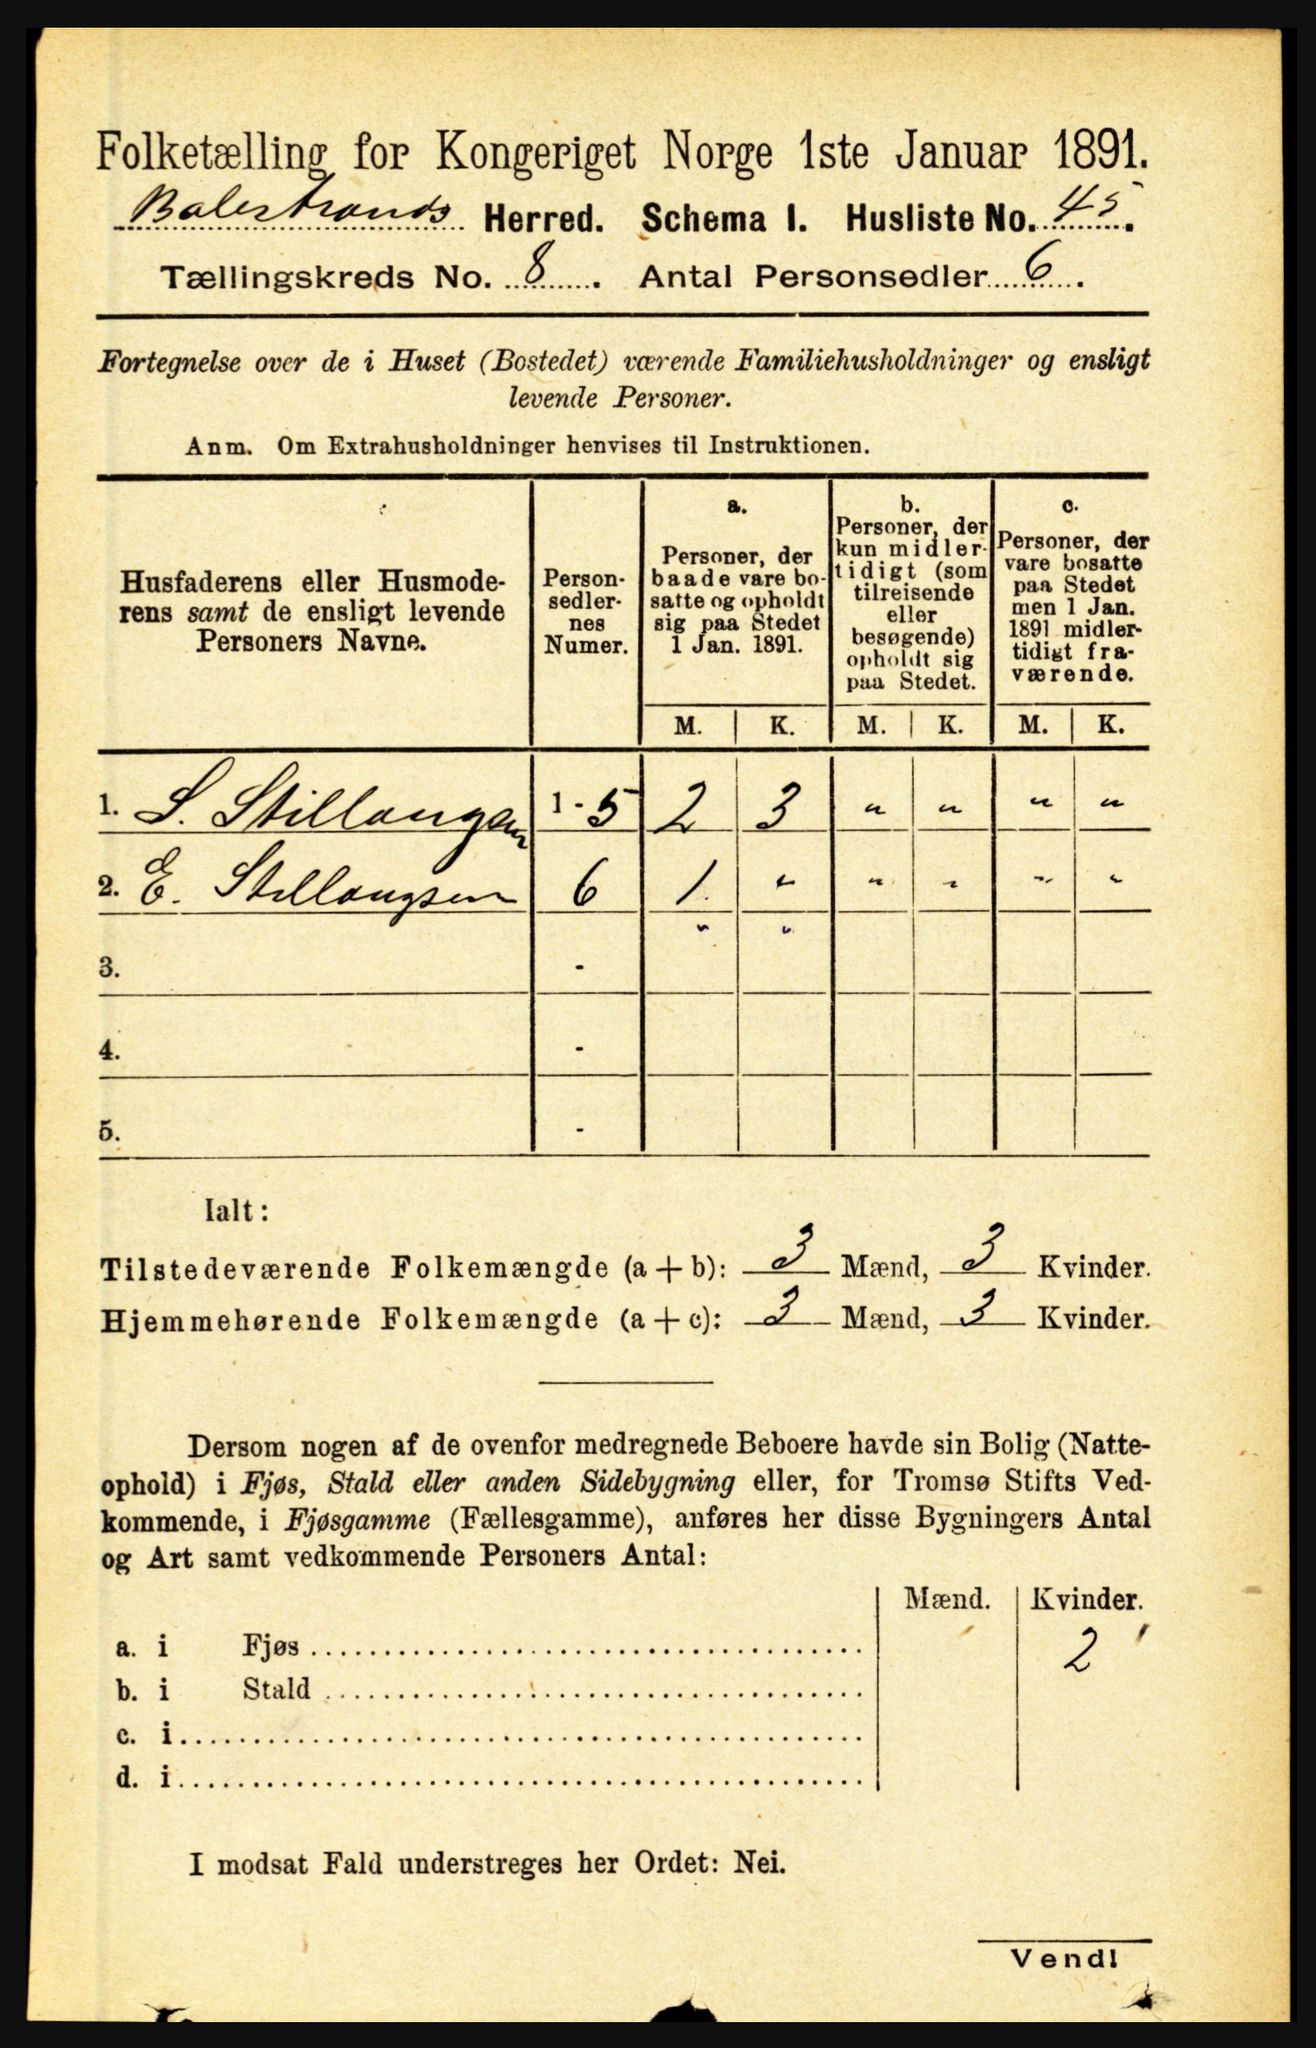 Folketælling for Kongeriget Norge 1ste Januar 1891.
Balestrands Herred. Schema I. Husliste No. 45.
Tællingskreds No. 8. Antal Personsedler 6.
Fortegnelse over de i Huset (Bostedet) værende Familiehusholdninger og ensligt
levende Personer.
Anm. Om Extrahusholdninger henvises til Instruktionen.
Husfaderens eller Husmode-
rens samt de ensligt levende
Personers Navne.
Person-
sedler-
nes
Numer.
a.
Personer, der
baade vare bo-
satte og opholdt
sig paa Stedet
1 Jan. 1891.
b.
Personer, der
kun midler-
tidigt (som
tilreisende
eller
besøgende)
opholdt sig
paa Stedet.
c.
Personer, der
vare bosatte
paa Stedet
men 1 Jan.
1891 midler-
tidigt fra-
værende.
M. K. M. K. M. K.
1. S. Stillaugsen 1 - 5 2 3 " " " "
2. E. Stillaugsen 6 1 " " " " "
" "
3. -
4. -
5. -
Ialt:
Tilstedeværende Folkemængde (a + b): 3 Mænd, 3 Kvinder.
Hjemmehørende Folkemængde (a + c): 3 Mænd, 3 Kvinder.
Dersom nogen af de ovenfor medregnede Beboere havde sin Bolig (Natte-
ophold) i Fjøs, Stald eller anden Sidebygning eller, for Tromsø Stifts Ved-
kommende, i Fjøsgamme (Fællesgamme), anføres her disse Bygningers Antal
og Art samt vedkommende Personers Antal:
Mænd. Kvinder.
a. i Fjøs 2
b. i Stald
c. i
d. i
I modsat Fald understreges her Ordet: Nei.
Vendl